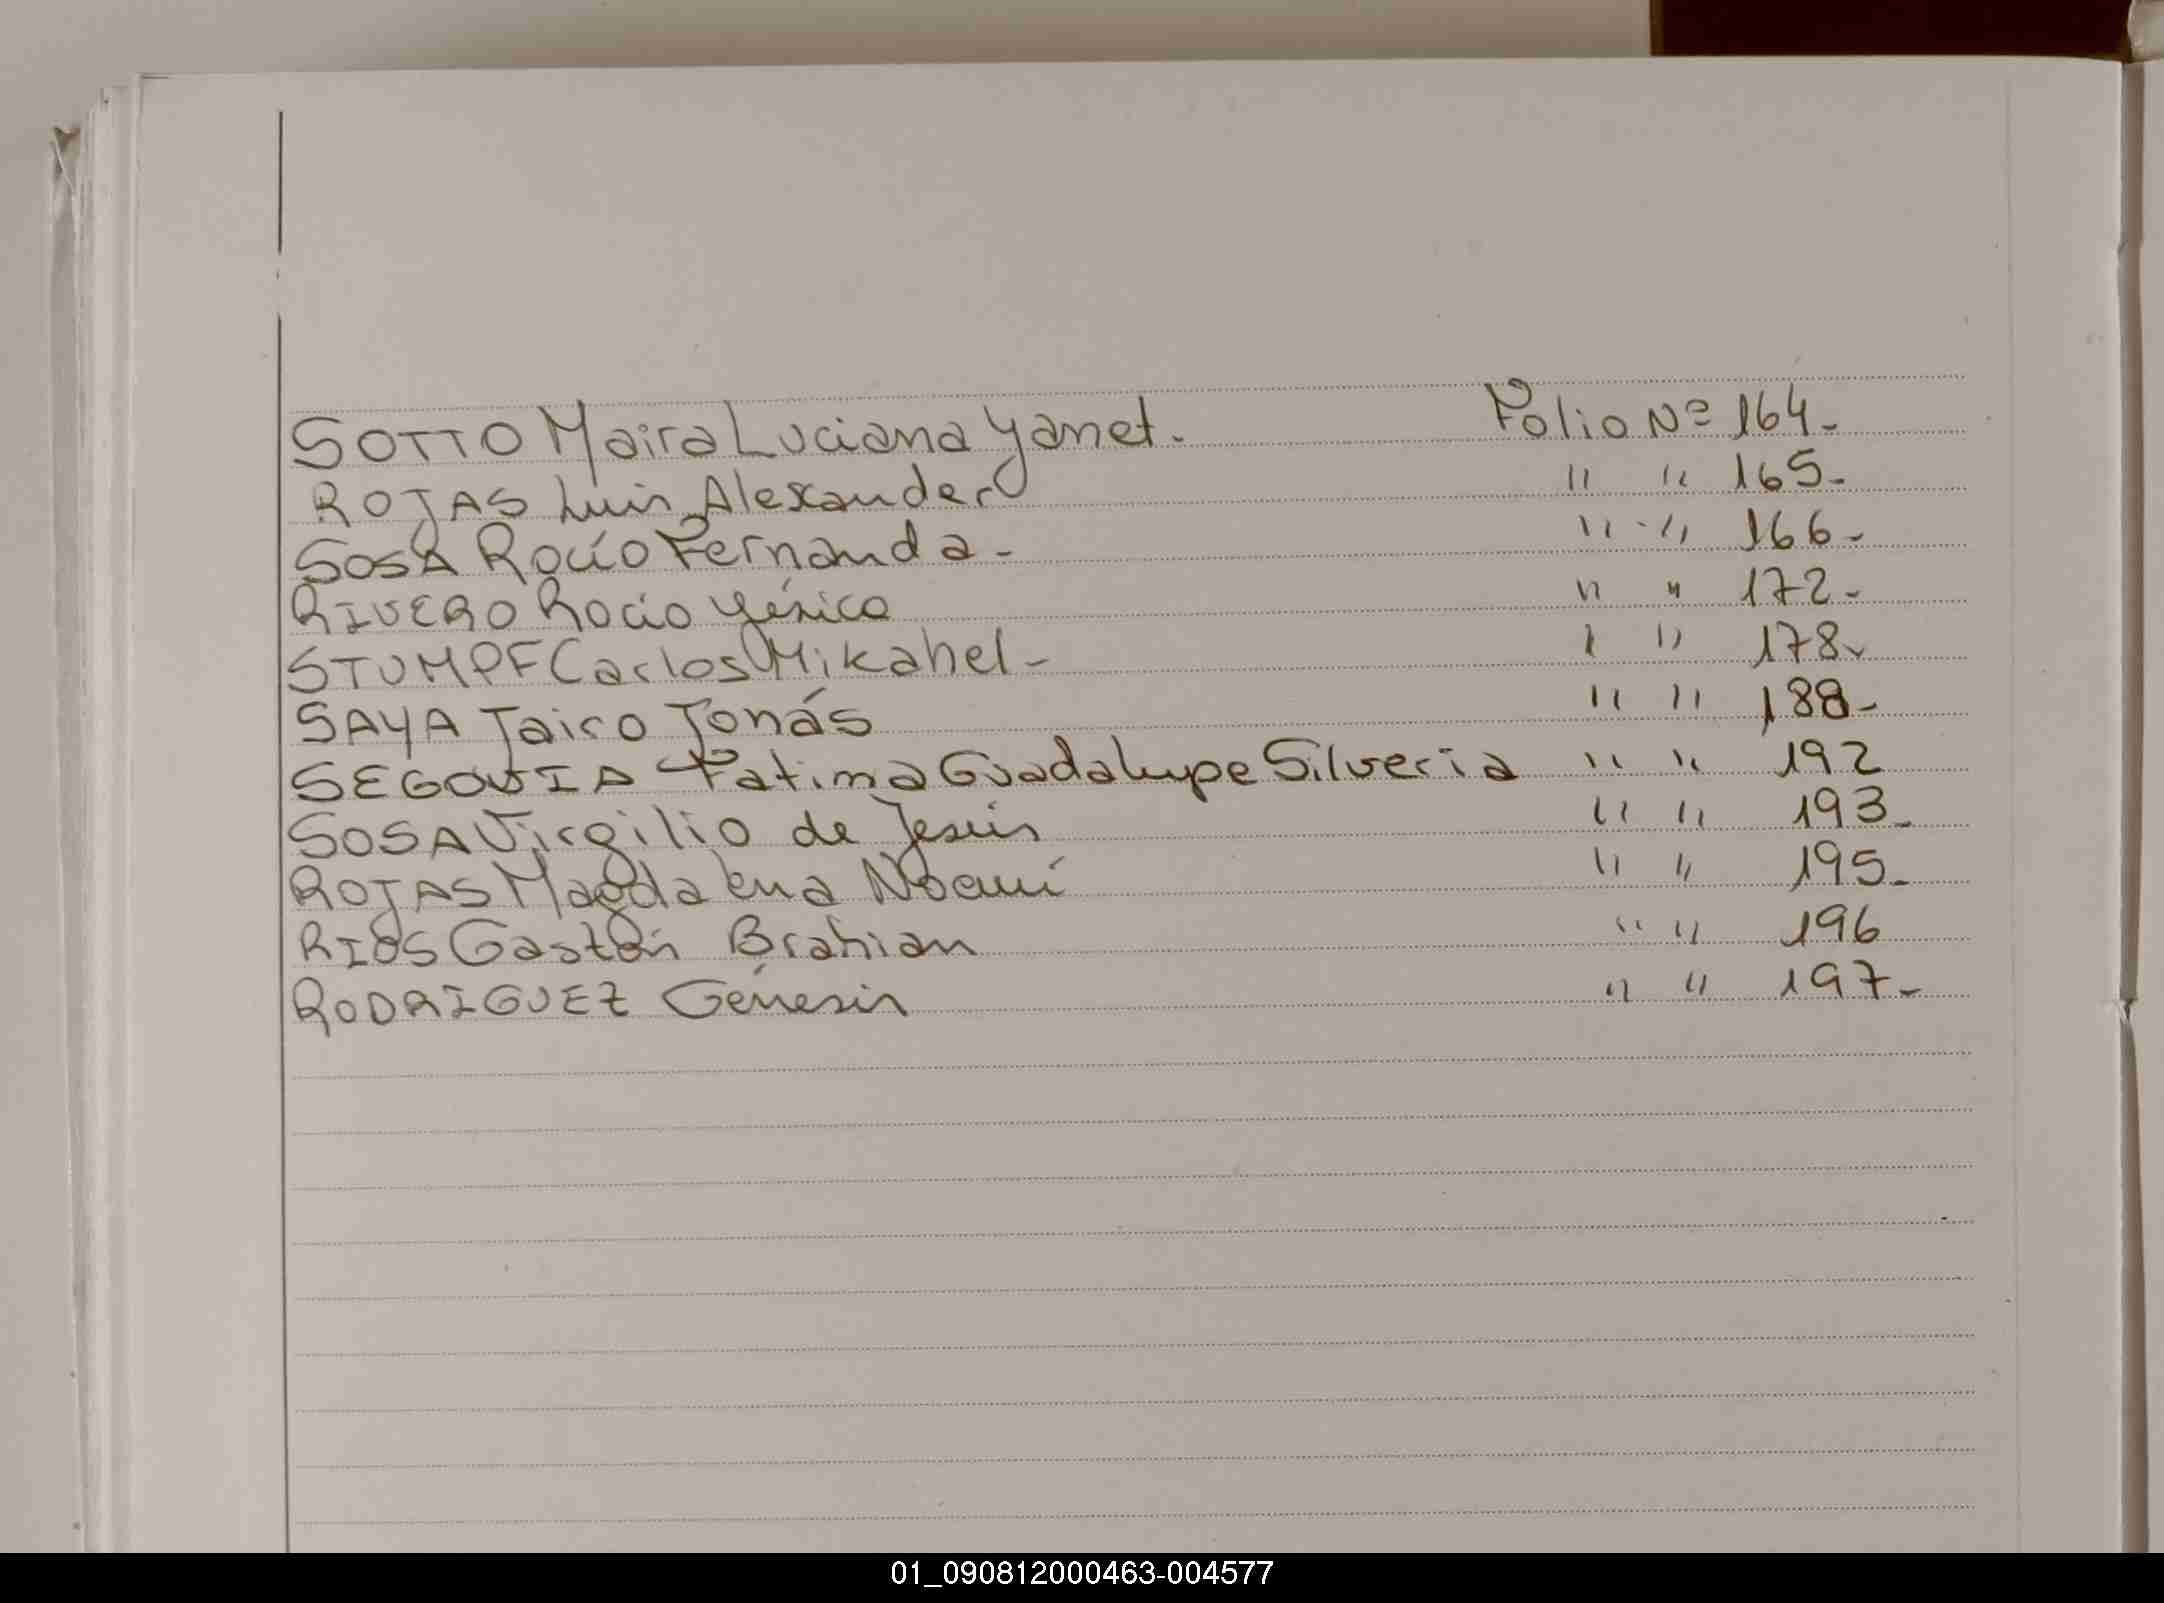 SOTTO Maira Luciana Yanet. Folio Nº 164-
ROJAS Luis Alexander " " 165-
SOSA Rocío Fernanda- " " 166-
RIVERO Rocio Yésica " " 172-
STUMPF Carlos Mikahel- " " 178-
SAYA Jairo Jonás " " 188-
SEGOVIA Fatima Guadalupe Silveria " " 192
SOSA Virgilio de Jesús " " 193-
ROJAS Magdalena Noemí " " 195-
RIOS Gastón Brahian " " 196
RODRIGUEZ Génesis " " 197-
01_090812000463-004577